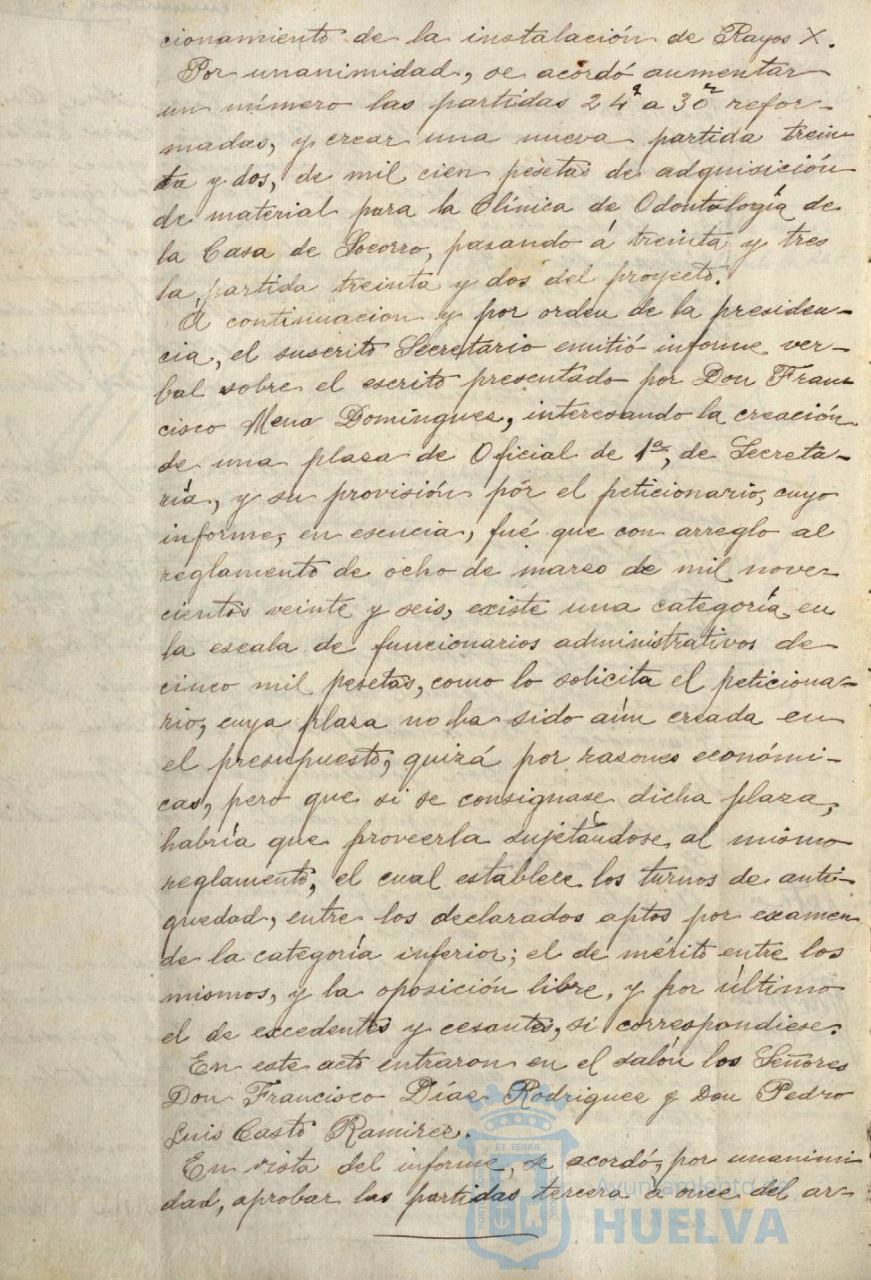 cionamiento de la instalación de Rayos X.
Por unanimidad, se acordó aumentar
un número las partidas 24ª a 30ª refor-
madas, y crear una nueva partida trein
ta y dos, de mil cien pesetas de adquisición
de material para la Clínica de Odontología de
la Casa de Socorro, pasando á treinta y tres
la partida treinta y dos del proyecto.
Á continuacion y por orden de la presiden-
cia, el suscrito Secretario emitió informe ver-
bal sobre el escrito presentado por Don Fran
cisco Mena Domínguez, interesando la creación
de una plaza de Oficial de 1ª, de Secreta-
ría, y su provisión pór el peticionario, cuyo
informe, en esencia, fué que con arreglo al
reglamento de ocho de marzo de mil nove-
cientos veinte y seis, existe una categoría en
la escala de funcionarios administrativos de
cinco mil pesetas, como lo solicita el peticiona-
rio, cuya plaza no ha sido aún creada en
el presupuesto, quizá por razones económi-
cas, pero que si se consignase dicha plaza,
habría que proveerla sujetándose al mismo
reglamento, el cual establece los turnos de anti-
guedad, entre los declarados aptos por examen
de la categoría inferior; el de mérito entre los
mismos, y la oposición libre, y por último
el de excedentes y cesantes, si correspondiese.
En este acto entraron en el salón los Señores
Don Francisco Díaz Rodriguez y Don Pedro
Luis Casto Ramirez.
En vista del informe, se acordó, por unanimi
dad, aprobar las partidas tercera á once del ar-
ET TERRÆ
Ayuntamiento de
HUELVA